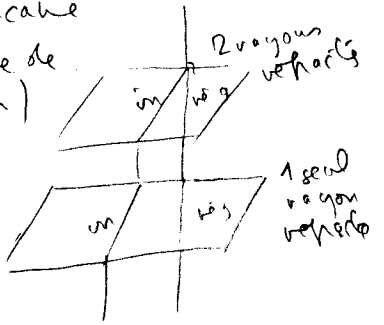 cane
e de
2 rayons
réfractés
in
rég
1 seul
rayon
réfracté
in
rég